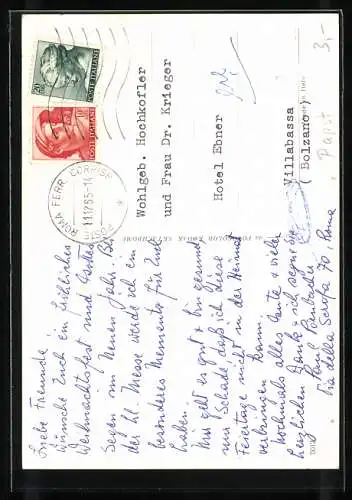 Liebe Freunde
Wünsche Euch ein fröhliches
Weihnachtsfest und Gottes
Segen im Neuen Jahr. Bei
der hl. Messe werde ich ein
besonderes Memento für Euch
haben.
Mir geht es gut + bin gesund
nur Schade daß ich diese
Feiertage nicht in der Heimat
verbringen kann.
Nochmals alles Gute + vielen
herzlichen Dank + ich segne Sie
Paul
Via della Scrofa 70, Roma
POSTE ITALIANE
20
POSTE ITALIANE
10
ROMA FERR. CORRISP.
11.12.65
Wohlgeb. Hochkofler
und Frau Dr. Krieger
Hotel Ebner
Villabassa
Bolzano)
3,-
Papst